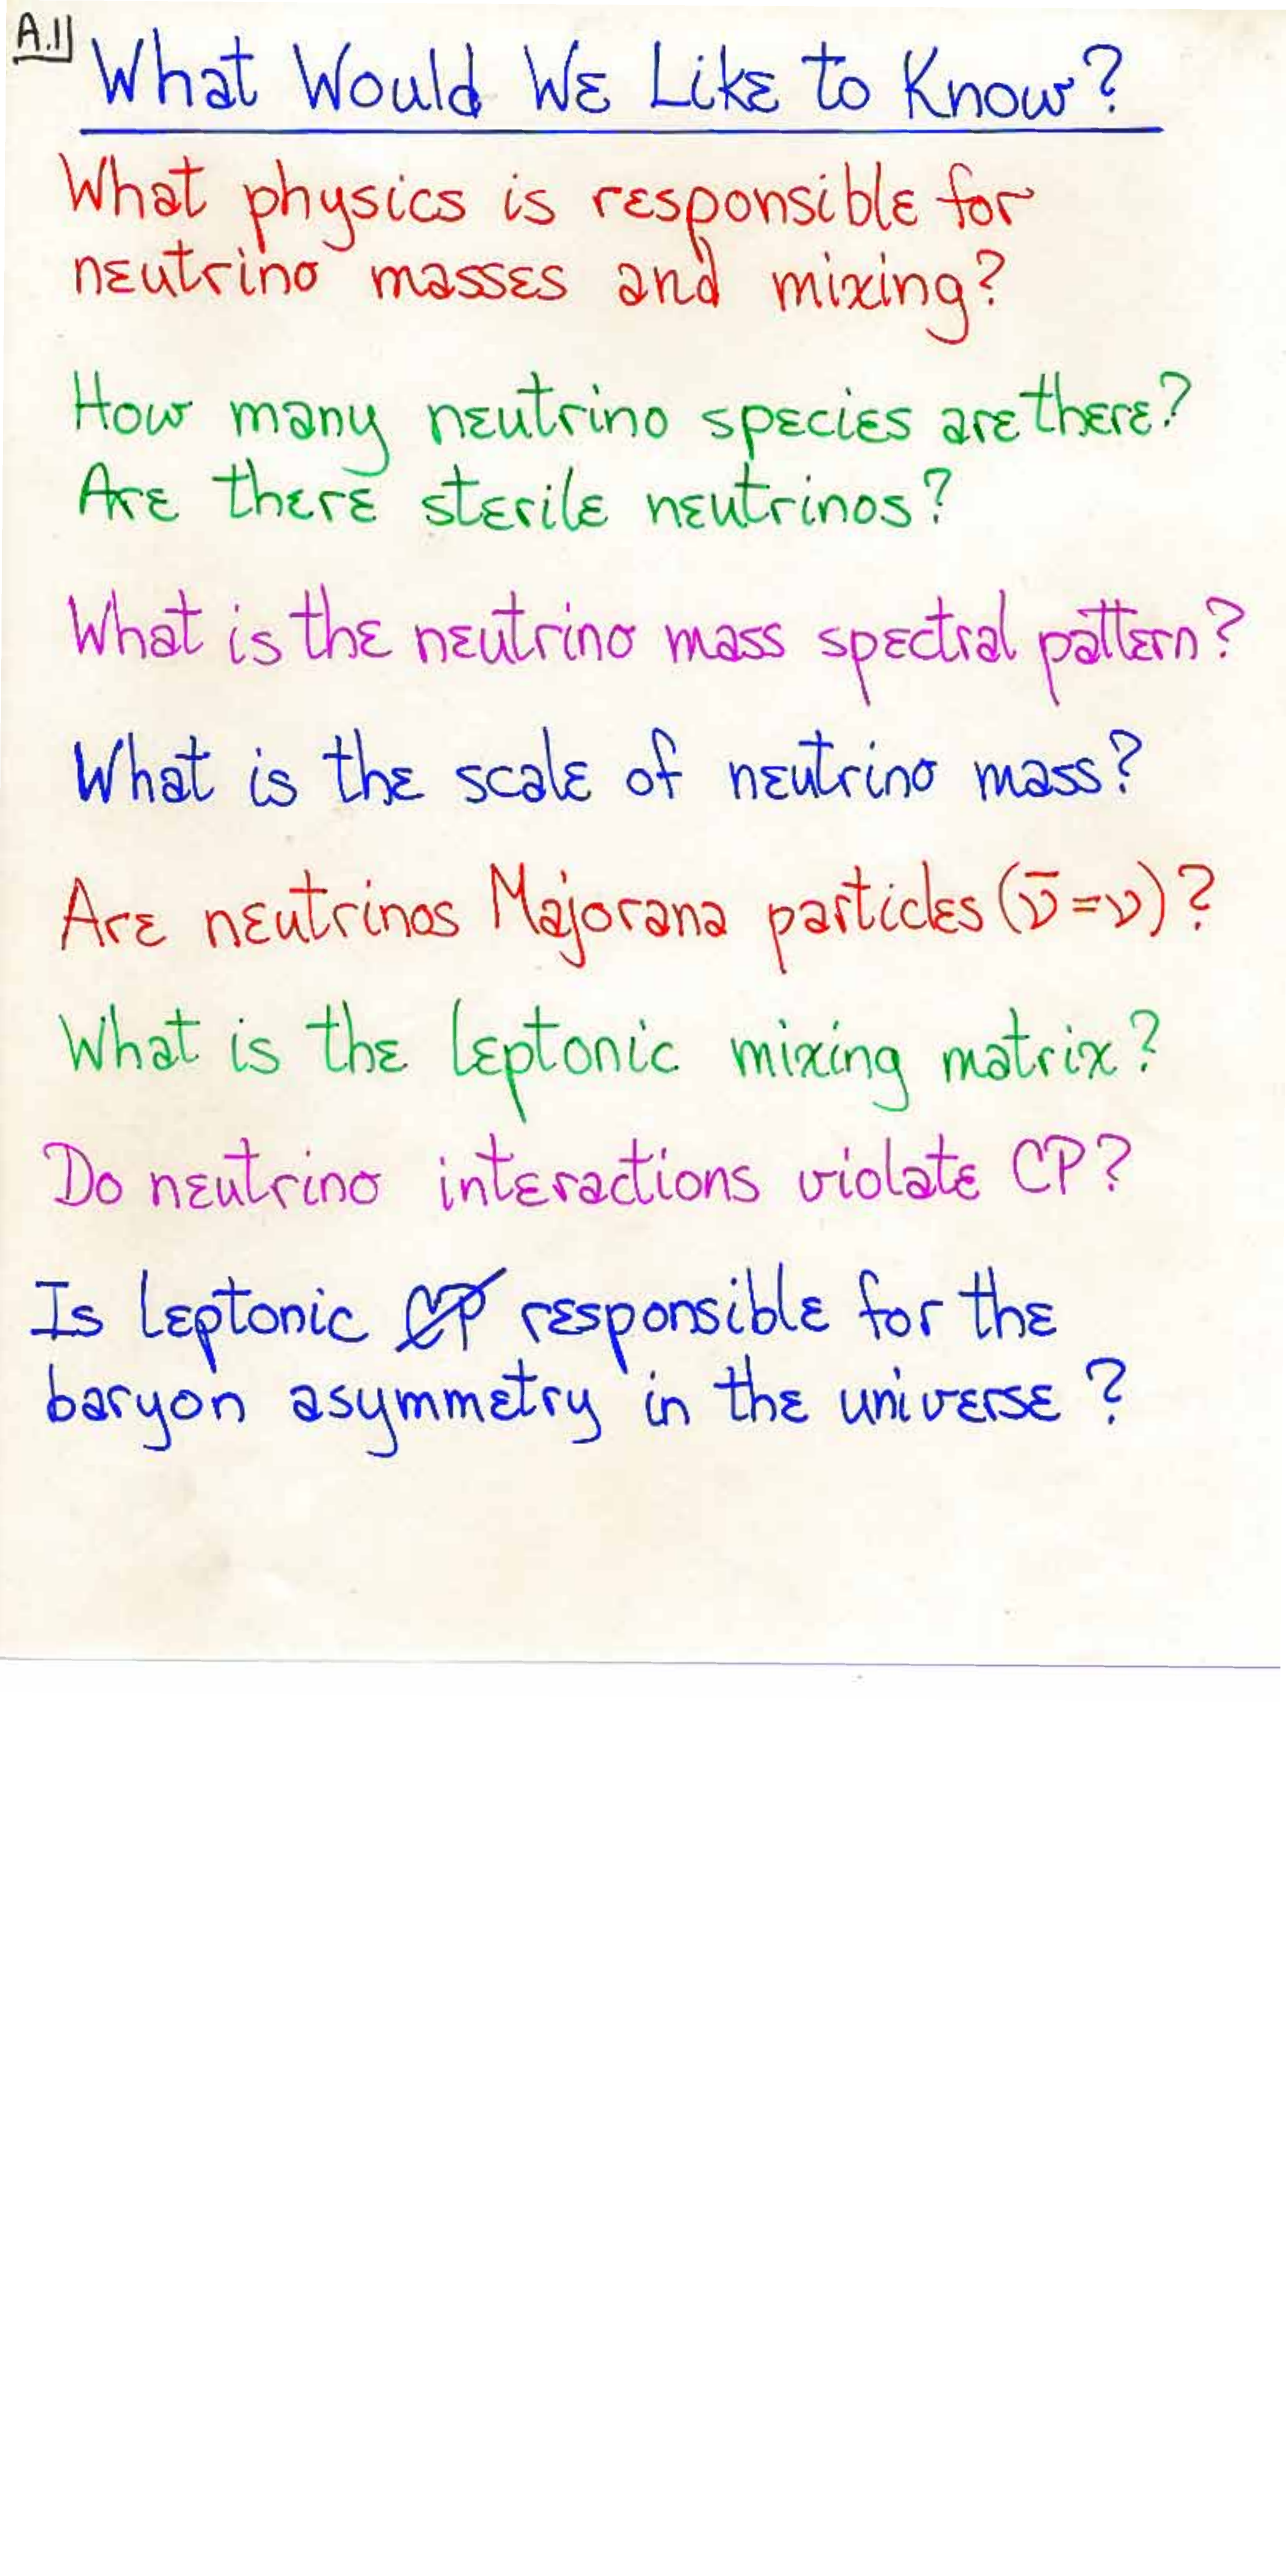 A.1
What Would We Like to Know?
What physics is responsible for
neutrino masses and mixing?
How many neutrino species are there?
Are there sterile neutrinos?
What is the neutrino mass spectral pattern?
What is the scale of neutrino mass?
Are neutrinos Majorana particles (ν̄ = ν)?
What is the leptonic mixing matrix?
Do neutrino interactions violate CP?
Is leptonic C̸P̸ responsible for the
baryon asymmetry in the universe ?